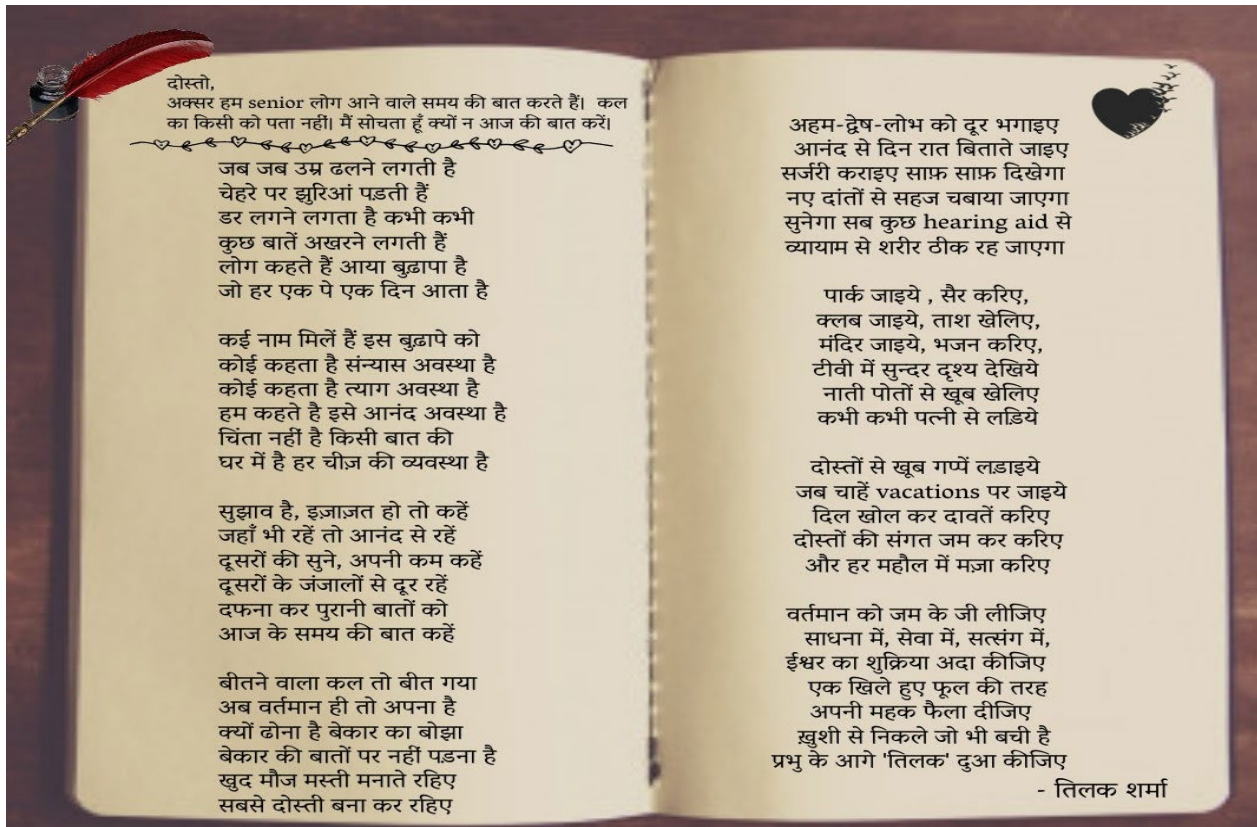 दोस्तो,
अक्सर हम senior लोग आने वाले समय की बात करते हैं। कल
का किसी को पता नहीं। मैं सोचता हूँ क्यों न आज की बात करें।
जब जब उम्र ढलने लगती है
चेहरे पर झुरिआं पड़ती हैं
डर लगने लगता है कभी कभी
कुछ बातें अखरने लगती हैं
लोग कहते हैं आया बुढ़ापा है
जो हर एक पे एक दिन आता है
कई नाम मिलें हैं इस बुढ़ापे को
कोई कहता है संन्यास अवस्था है
कोई कहता है त्याग अवस्था है
हम कहते है इसे आनंद अवस्था है
चिंता नहीं है किसी बात की
घर में है हर चीज़ की व्यवस्था है
सुझाव है, इज़ाज़त हो तो कहें
जहाँ भी रहें तो आनंद से रहें
दूसरों की सुने, अपनी कम कहें
दूसरों के जंजालों से दूर रहें
दफना कर पुरानी बातों को
आज के समय की बात कहें
बीतने वाला कल तो बीत गया
अब वर्तमान ही तो अपना है
क्यों ढोना है बेकार का बोझा
बेकार की बातों पर नहीं पड़ना है
खुद मौज मस्ती मनाते रहिए
सबसे दोस्ती बना कर रहिए
अहम-द्वेष-लोभ को दूर भगाइए
आनंद से दिन रात बिताते जाइए
सर्जरी कराइए साफ़ साफ़ दिखेगा
नए दांतों से सहज चबाया जाएगा
सुनेगा सब कुछ hearing aid से
व्यायाम से शरीर ठीक रह जाएगा
पार्क जाइये , सैर करिए,
क्लब जाइये, ताश खेलिए,
मंदिर जाइये, भजन करिए,
टीवी में सुन्दर दृश्य देखिये
नाती पोतों से खूब खेलिए
कभी कभी पत्नी से लडिये
दोस्तों से खूब गप्पें लड़ाइये
जब चाहें vacations पर जाइये
दिल खोल कर दावतें करिए
दोस्तों की संगत जम कर करिए
और हर महौल में मज़ा करिए
वर्तमान को जम के जी लीजिए
साधना में, सेवा में, सत्संग में,
ईश्वर का शुक्रिया अदा कीजिए
एक खिले हुए फूल की तरह
अपनी महक फैला दीजिए
ख़ुशी से निकले जो भी बची है
प्रभु के आगे 'तिलक' दुआ कीजिए
- तिलक शर्मा